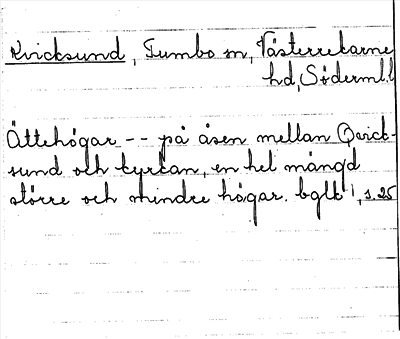 Kvicksund, Tumbo sn, Västerrekarne
hd, Söderml.l
Ättehögar -- på åsen mellan Qvick-
sund och kyrkan, en hel mängd
större och mindre högar. bglb 1, s. 25